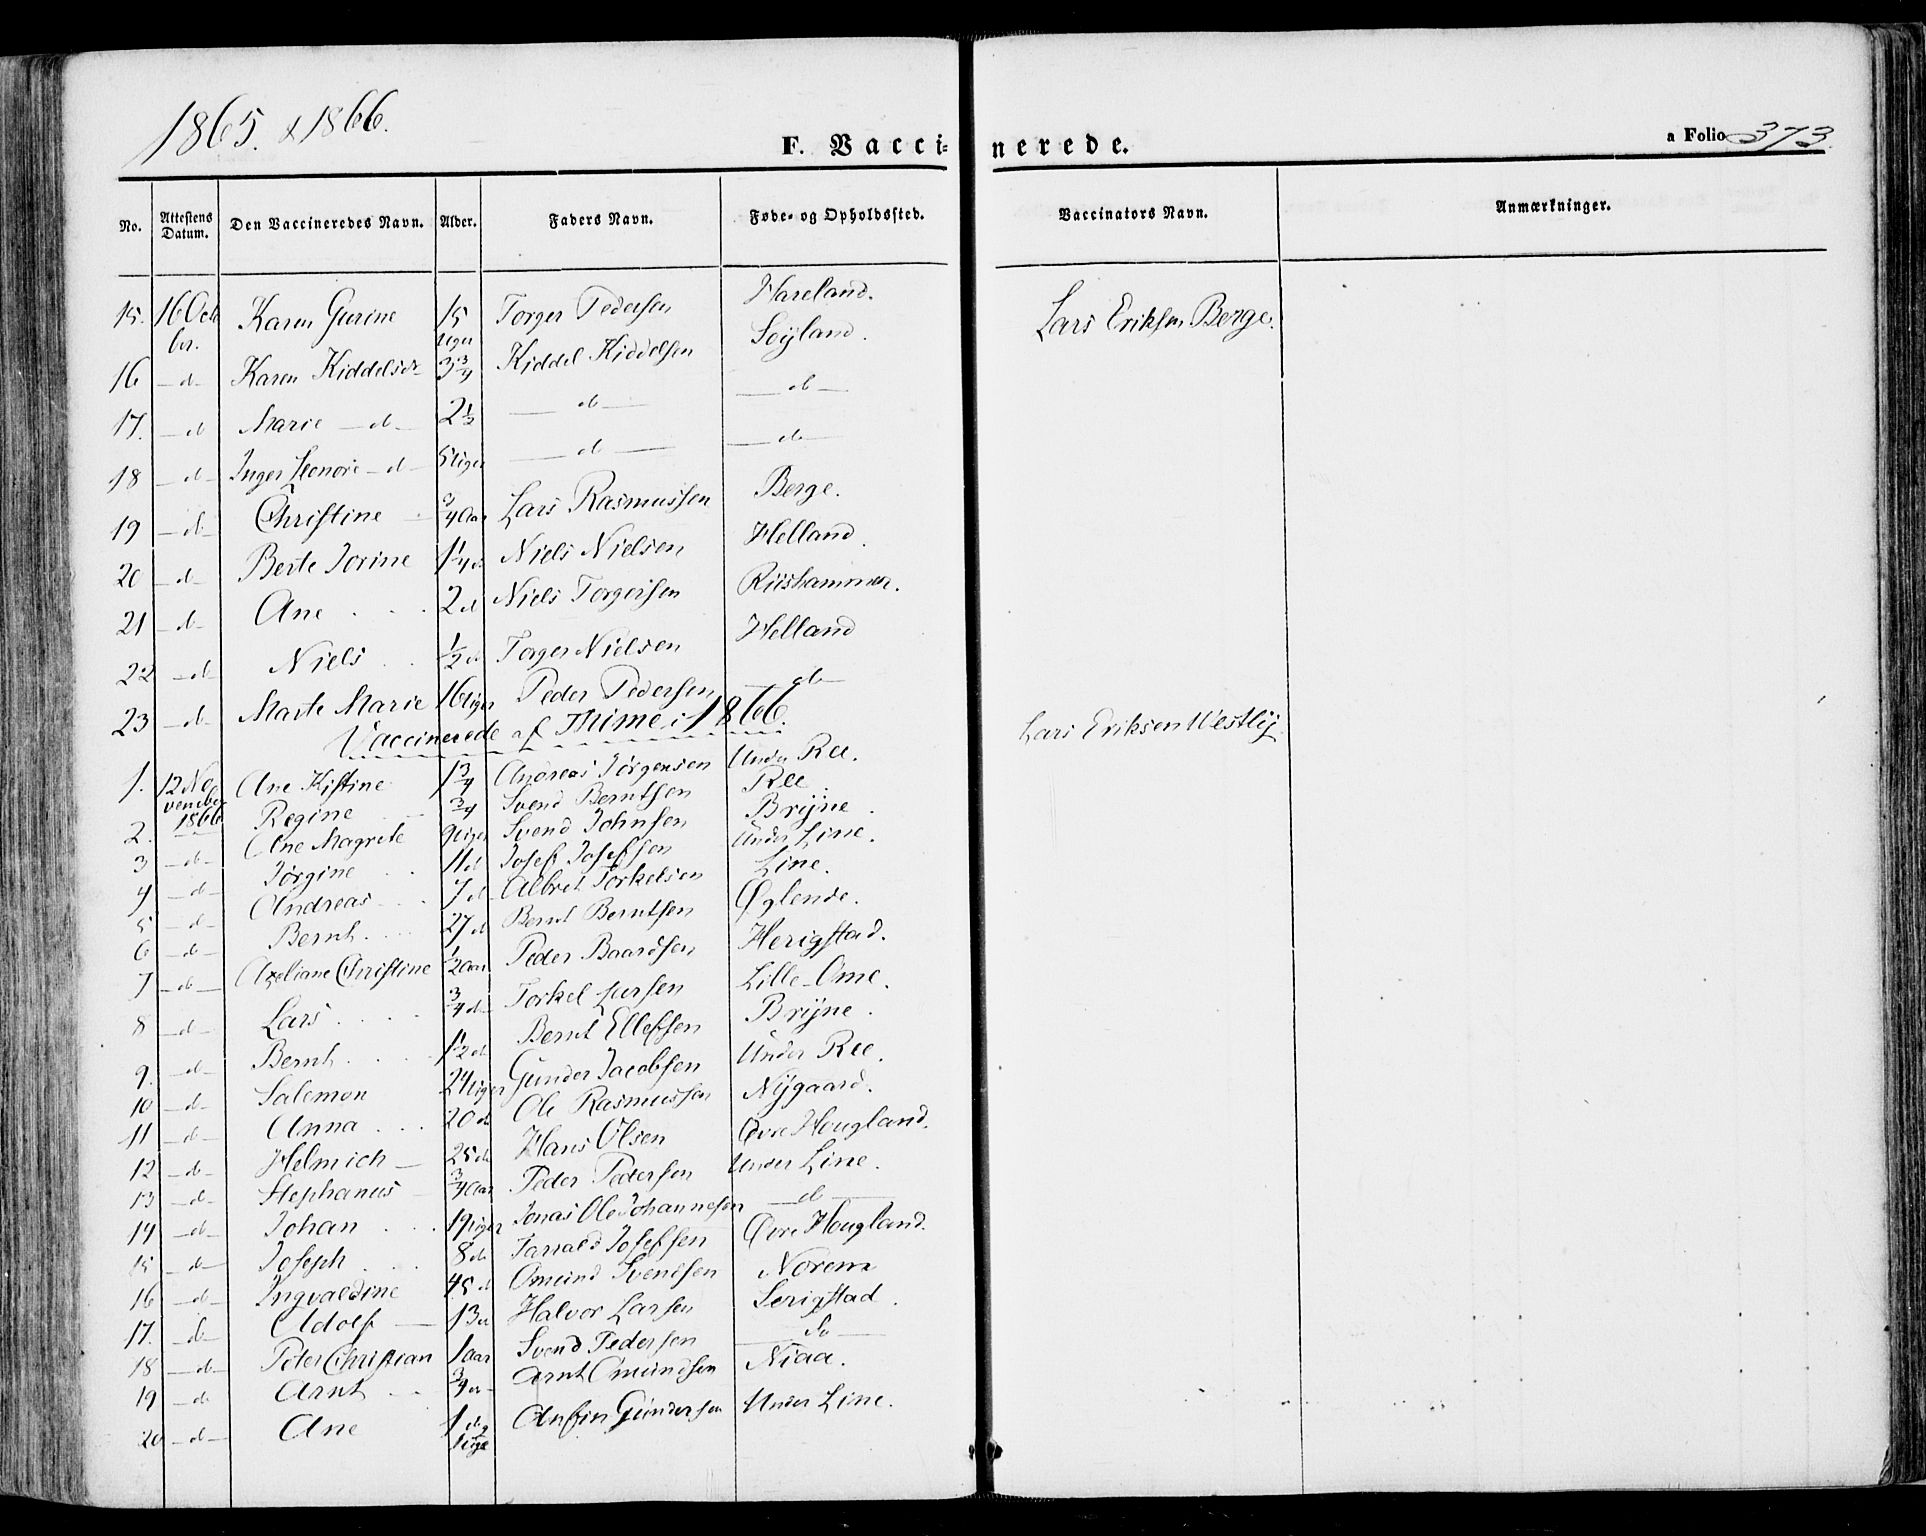 1865. & 1866.
F. Vaccinerede.
a Folio 373.
No. Attestens Datum. Den Vaccineredes Navn. Alder. Faders Navn. Føde- og Opholdssted. Vaccinators Navn. Anmærkninger.
15. 16 Octbr. Karen Gurine 15 Uger Torger Pedersen Hareland. Lars Eriksen Berge.
16 -d- Karen Kiddelsdr 3 3/4 Kiddel Kiddelsen Soÿland.
17. -d- Marie -d- 2 1/2 -d- -d-
18 -d- Inger Leonore -d- 5 Uger -d- -d-
19 -d- Christine 3/4 Aar Lars Rasmussen Berge.
20 -d- Berte Jorine 1 1/4 d Niels Nielsen Helland.
21 -d- Ane 2 d Niels Torgersen Riishammer.
22 -d- Niels 1/2 d Torger Nielsen Helland
23 -d- Marte Marie 16 Uger Peder Pedersen -d-
Vaccinerede af Thime i 1866. Lars Eriksen Westlÿ
1. 12 November 1866 Ane Kistine 1 3/4 Andreas Jørgensen Under Ree.
2. Regine 3/4 Svend Berntsen Ree.
3 -d- Ane Magrete 9 Uger Svend Johnsen Brÿne.
4 -d- Jørgine 11 d Josef Josefsen Under Line.
5 -d- Andreas 7 d Albret Torkelsen Line.
6 -d- Bernt 27 d Bernt Berntsen Øglende.
7 -d- Axeliane Christine 1/2 Aar Peder Baardsen Herigstad.
8 -d- Lars 3/4 d Torkel Larsen Lille-Ome.
9. -d- Bernt 1 1/2 d Bernt Ellefsen Brÿne.
10 -d- Salemon 24 Uger Gunder Jacobsen Under Ree.
11 -d- Anna 20 d Ole Rasmussen Nÿgaard.
12 -d- Helmich 25 d Hans Olsen Øvre Hougland.
13 -d- Stephanus 3/4 Aar Peder Pedersen Under Line.
14 -d- Johan 19 Uger Jonas Ole Johannesen -d-
15 -d- Joseph 8 d Tarrald Josefsen Øvre Hougland.
16 -d- Ingvaldine 45 d Omund Svendsen Norem
17. -d- Adolf 13 d Halvor Larsen Serigstad.
18 -d- Peter Christian 1 Aar Svend Pedersen Do
19 -d- Arnt 3/4 d Arnt Omundsen Niaa.
20 -d- Ane 1 d Anfin Gundersen Under Line.